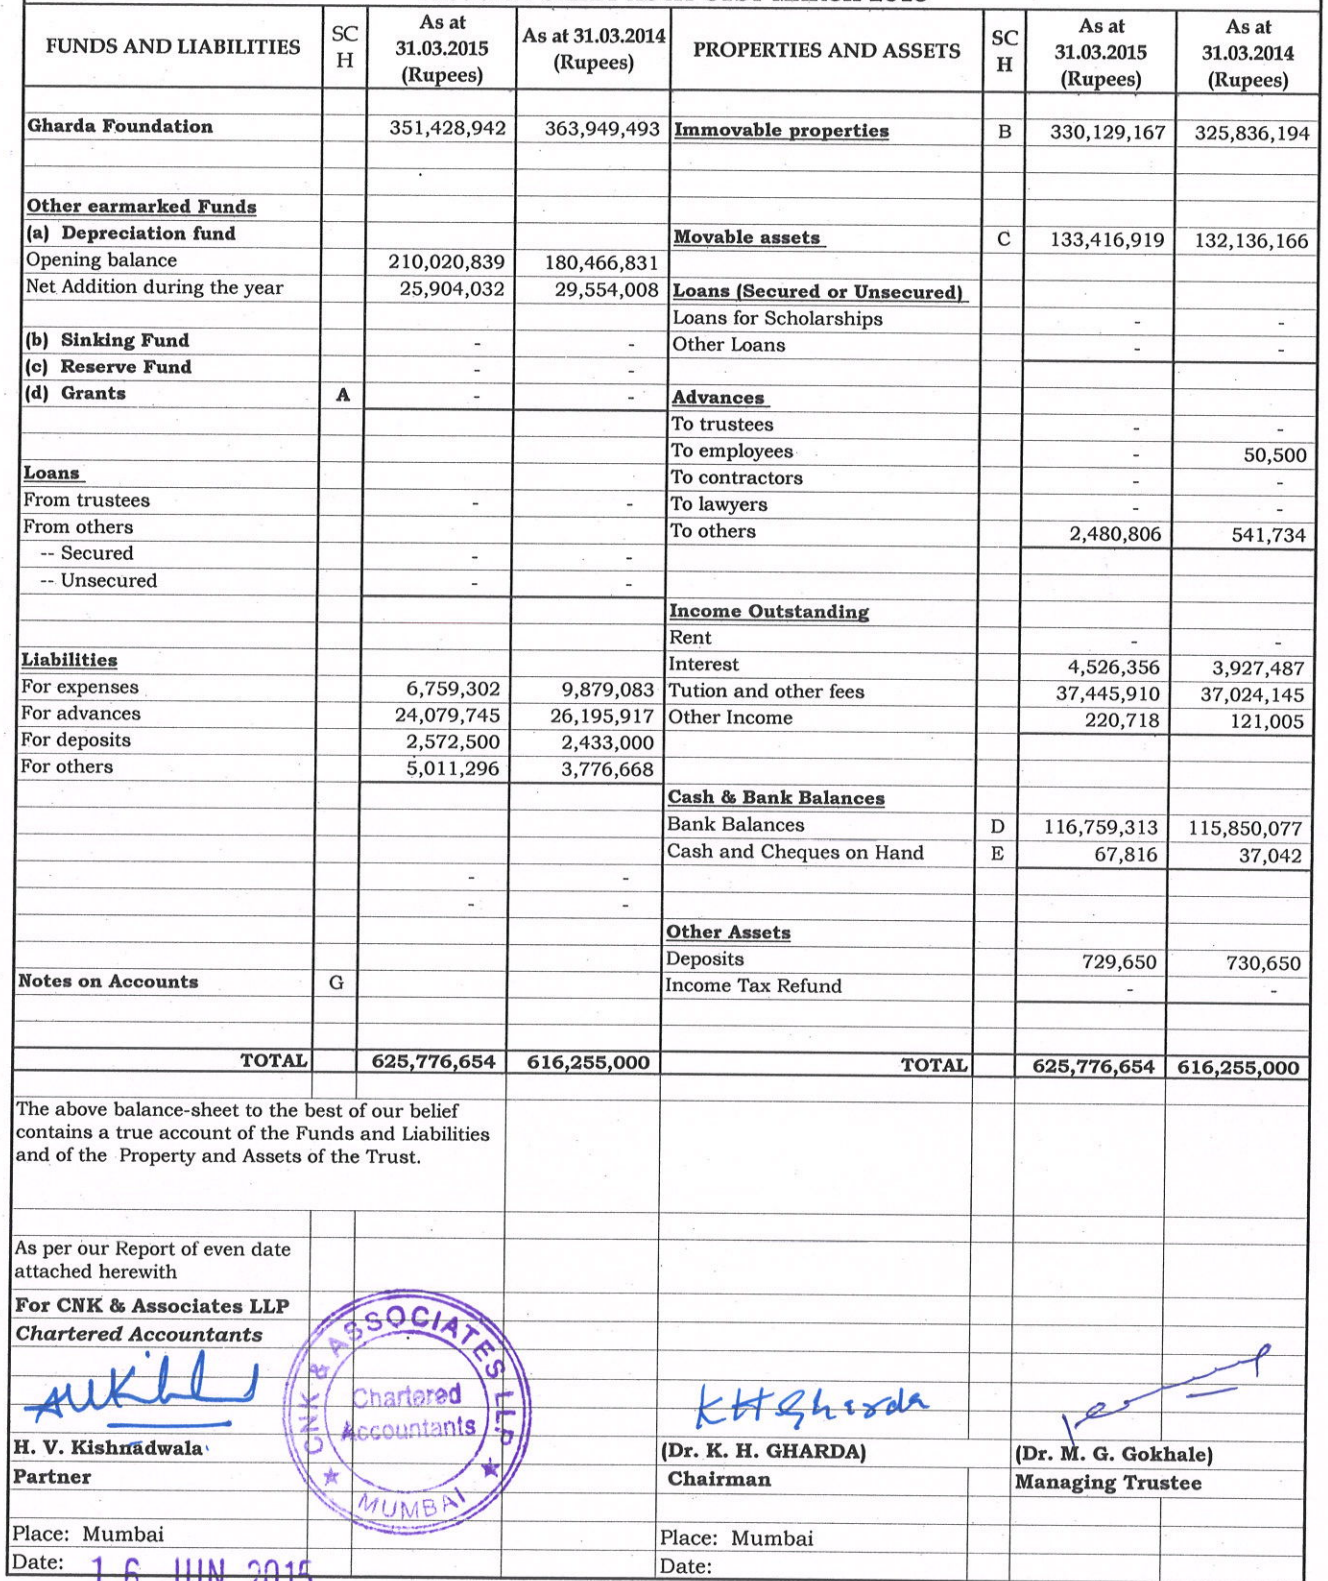 FUNDS AND LIABILITIES | SC H | As at 31.03.2015 (Rupees) | As at 31.03.2014 (Rupees) | PROPERTIES AND ASSETS | SC H | As at 31.03.2015 (Rupees) | As at 31.03.2014 (Rupees)
Gharda Foundation 351,428,942 363,949,493 Immovable properties B 330,129,167 325,836,194
Other earmarked Funds
(a) Depreciation fund Movable assets C 133,416,919 132,136,166
Opening balance 210,020,839 180,466,831
Net Addition during the year 25,904,032 29,554,008 Loans (Secured or Unsecured)
Loans for Scholarships - -
(b) Sinking Fund - - Other Loans - -
(c) Reserve Fund - -
(d) Grants A - - Advances
To trustees - -
To employees - 50,500
Loans To contractors - -
From trustees - - To lawyers - -
From others To others 2,480,806 541,734
-- Secured - -
-- Unsecured - -
Income Outstanding
Rent - -
Liabilities Interest 4,526,356 3,927,487
For expenses 6,759,302 9,879,083 Tution and other fees 37,445,910 37,024,145
For advances 24,079,745 26,195,917 Other Income 220,718 121,005
For deposits 2,572,500 2,433,000
For others 5,011,296 3,776,668
Cash & Bank Balances
Bank Balances D 116,759,313 115,850,077
Cash and Cheques on Hand E 67,816 37,042
- -
- -
Other Assets
Deposits 729,650 730,650
Notes on Accounts G Income Tax Refund - -
TOTAL 625,776,654 616,255,000 TOTAL 625,776,654 616,255,000
The above balance-sheet to the best of our belief
contains a true account of the Funds and Liabilities
and of the Property and Assets of the Trust.
As per our Report of even date
attached herewith
For CNK & Associates LLP
Chartered Accountants
CNK & ASSOCIATES LLP
Chartered
Accountants
MUMBAI
KHGharda
H. V. Kishnadwala (Dr. K. H. GHARDA) (Dr. M. G. Gokhale)
Partner Chairman Managing Trustee
Place: Mumbai Place: Mumbai
Date: 16 JUN 2015 Date: